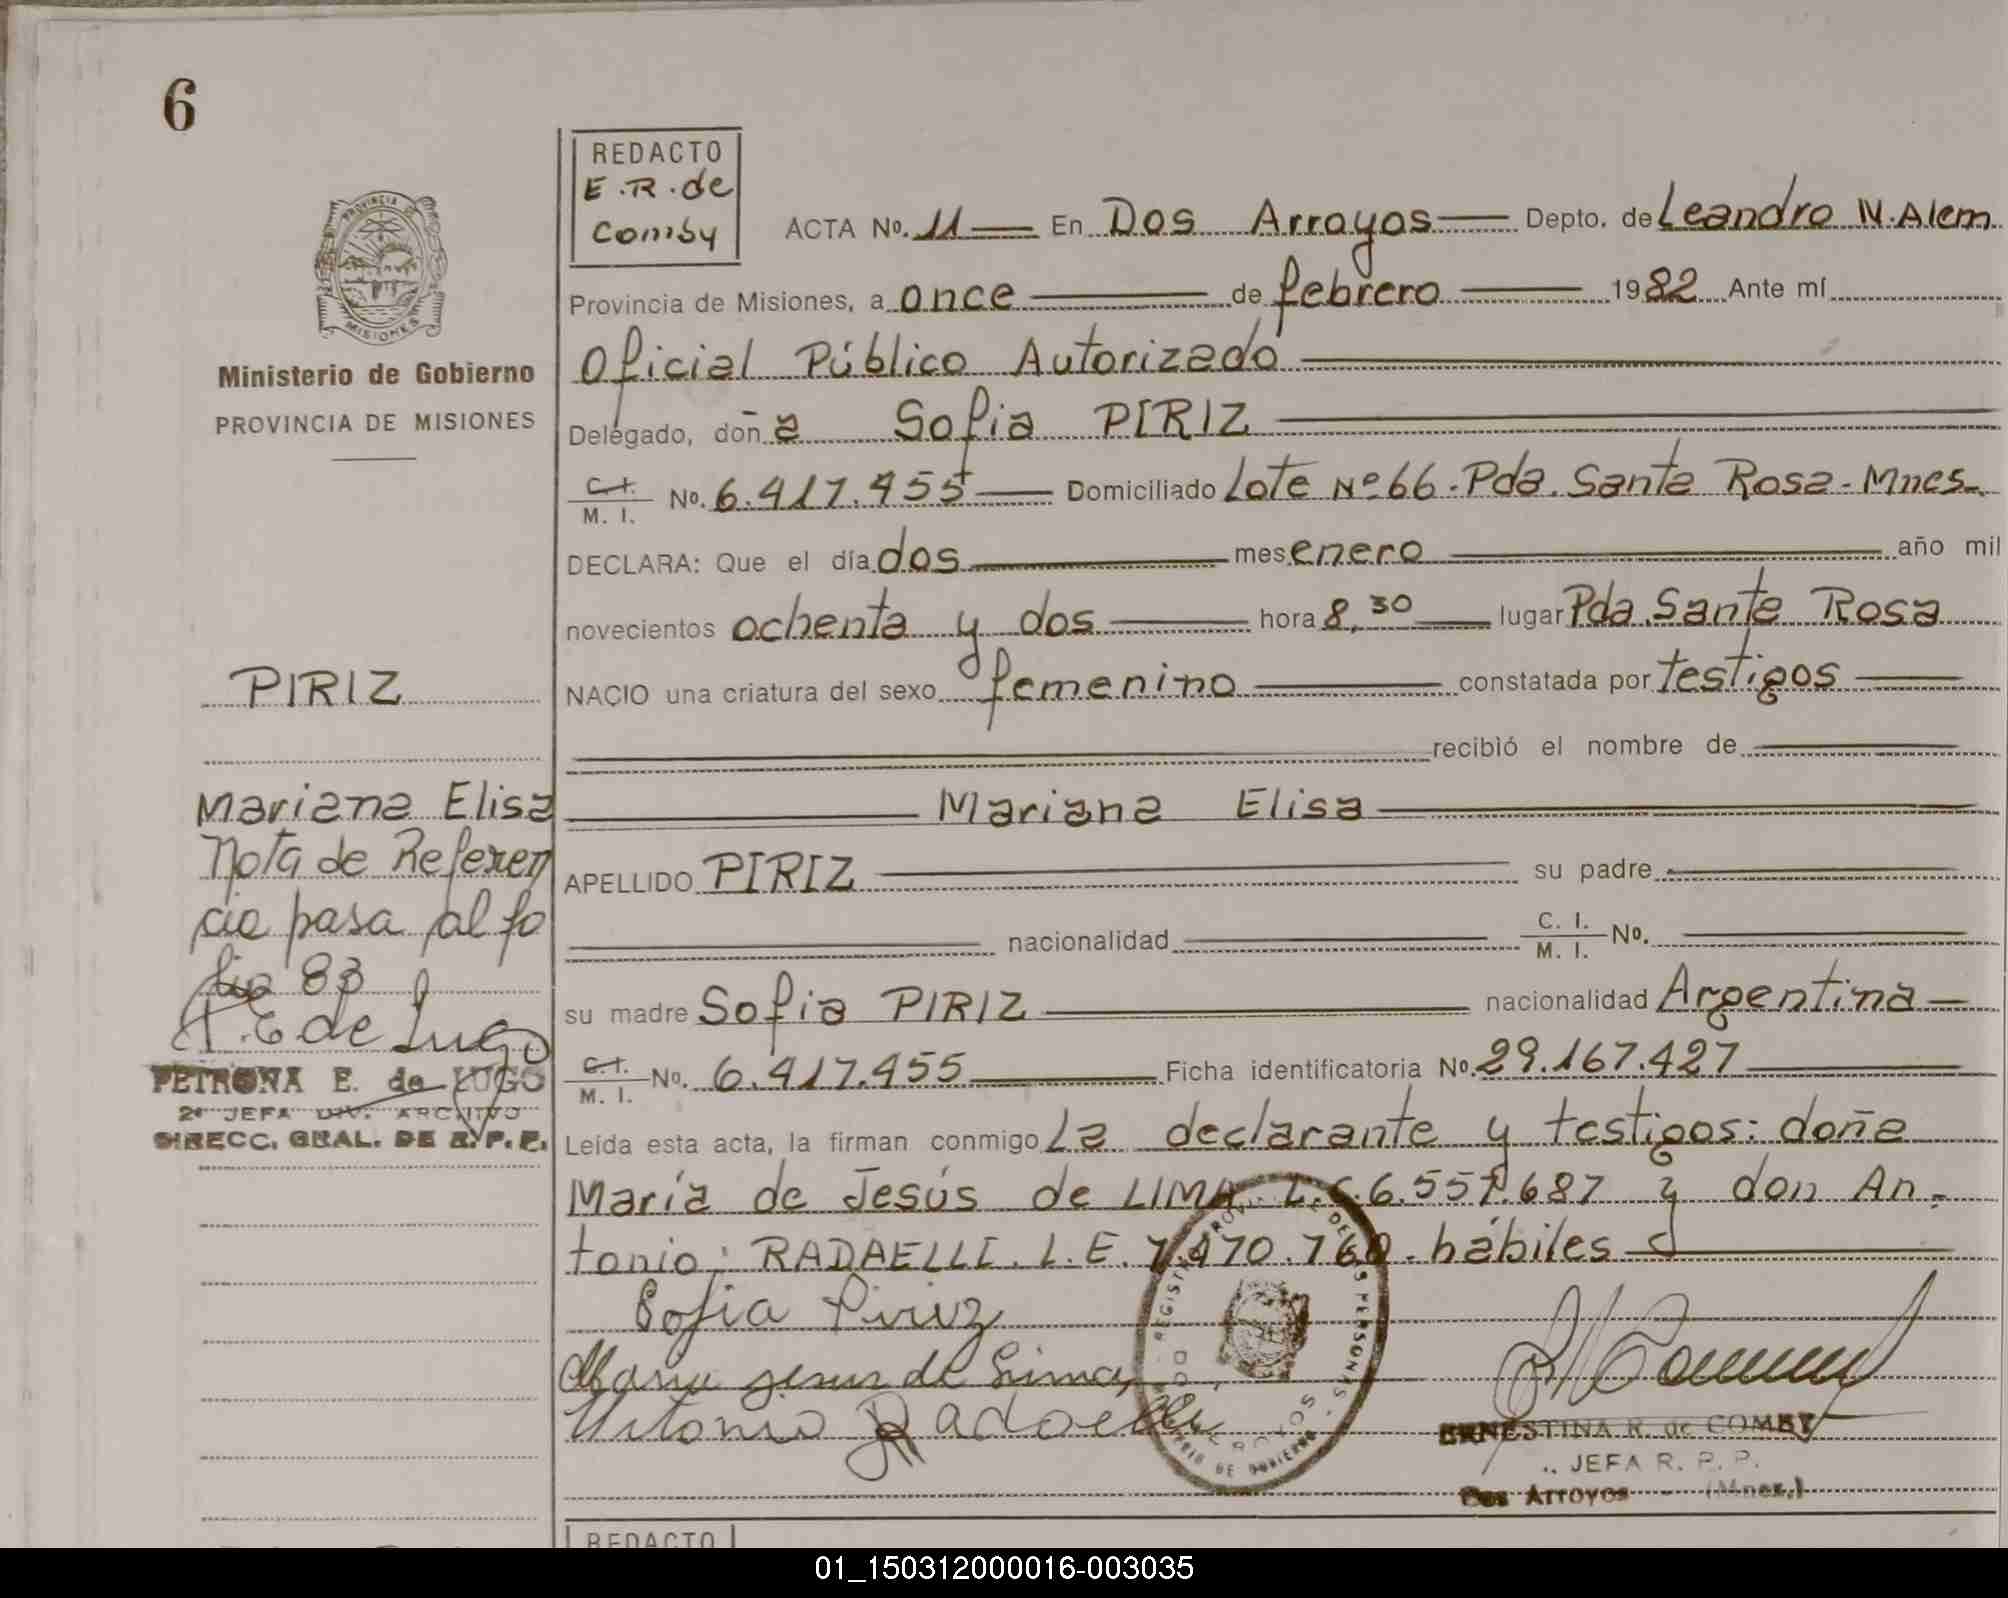 6
REDACTO
E.R. de
Comby
ACTA No. 11 En Dos Arroyos Depto. de Leandro N. Alem
Provincia de Misiones, a once de febrero 1982 Ante mí
Oficial Público Autorizado
Delegado, doña Sofia PIRIZ
C.I. M. I. No. 6.417.455 Domiciliado Lote Nº 66 - Pda. Santa Rosa - Mnes.
DECLARA: Que el día dos mes enero año mil
novecientos ochenta y dos hora 8,30 lugar Pda. Santa Rosa
NACIO una criatura del sexo femenino constatada por testigos
recibió el nombre de
Mariana Elisa
APELLIDO PIRIZ su padre
nacionalidad C. I. M. I. No.
su madre Sofia PIRIZ nacionalidad Argentina
C.I. M. I. No. 6.417.455 Ficha identificatoria No. 29.167.427
Leída esta acta, la firman conmigo La declarante y testigos: doña
María de Jesús de LIMA. L.C. 6.557.687 y don An-
tonio: RADAELLI. L.E. 7.470.760. hábiles
Sofia Piriz
Maria jesus de Lima
Antonio Radaelli
ERNESTINA R. de COMBY
JEFA R. P. P.
Dos Arroyos (Mnes.)
PROVINCIA DE
MISIONES
Ministerio de Gobierno
PROVINCIA DE MISIONES
PIRIZ
Mariana Elisa
Nota de Referen
cia pasa al fo
lio 83
P. E de Lugo
PETRONA E. de LUGO
2ª JEFA DIV. ARCHIVO
DIRECC. GRAL. DE R. P. P.
REDACTO
01_150312000016-003035